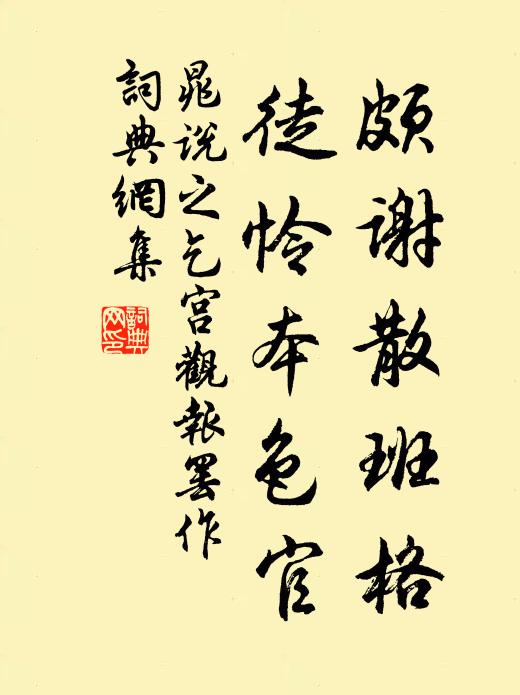 頗謝散班格
徒怜本色官
晁說之乞宮觀報罷作
詞典網集
詞典网印